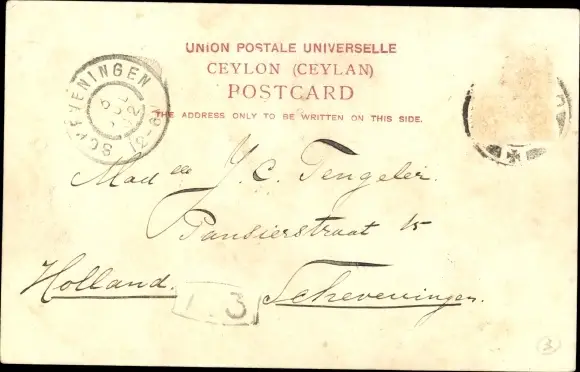 UNION POSTALE UNIVERSELLE
CEYLON (CEYLAN)
POSTCARD
THE ADDRESS ONLY TO BE WRITTEN ON THIS SIDE.
SCHEVENINGEN
12-8
Mad de J. C. Tengeler.
Pansierstraat 15
Holland.
Scheveningen.
3
3